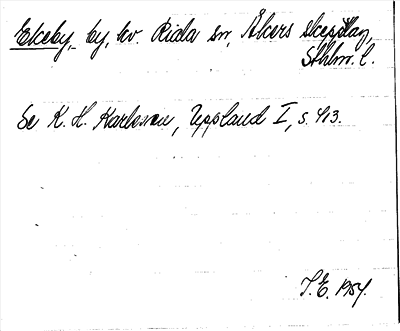 Ekeby, by, kv. Rida sn, Åkers skeppslag,
Sthlm. l.
Se K. H. Karlsson, Uppland I, s. 413.
T.E. 1954.